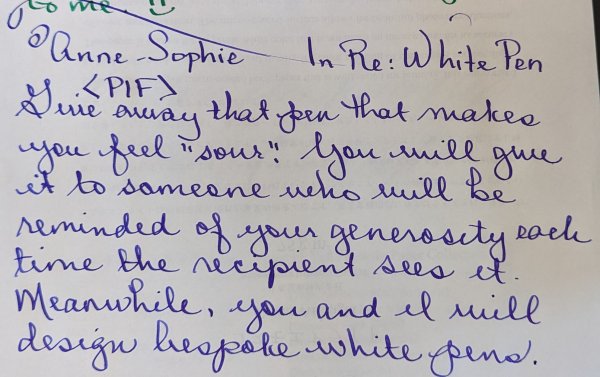 to me. !!
@Anne-Sophie In Re: White Pen
<PIF>
Give away that pen that makes
you feel "sour". You will give
it to someone who will be
reminded of your generosity each
time the recipient sees it.
Meanwhile, you and I will
design bespoke white pens.